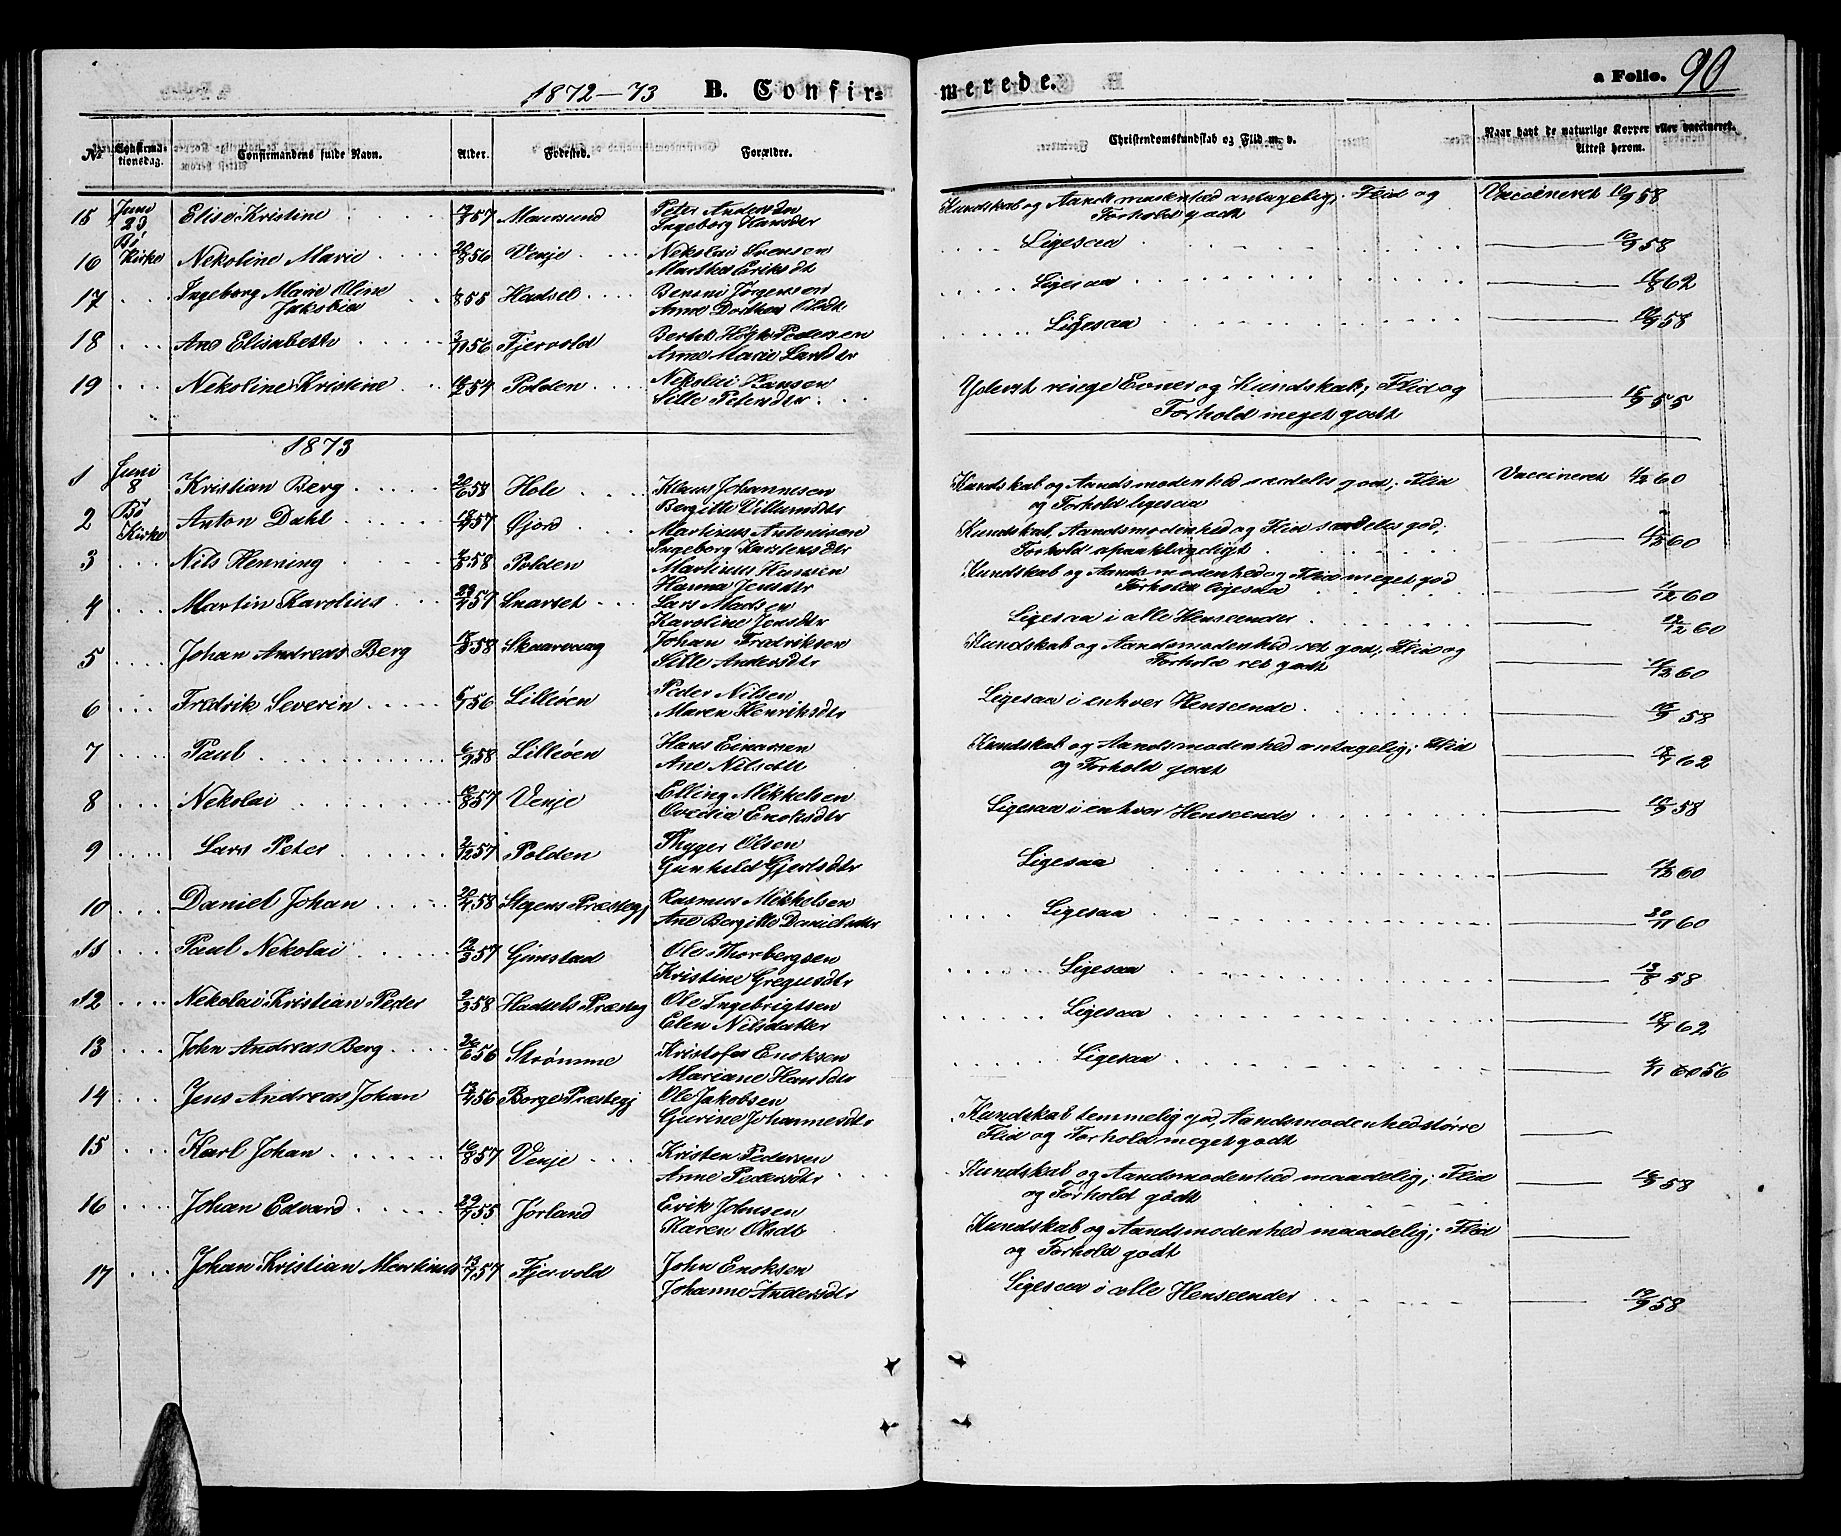 1872-73 B. Confir-
merede. a Folio. 90
No Confirmationsdag. Confirmandens fulde Navn. Alder. Fødested. Forældre.
Christendomskundskab og Flid m. v. Naar havt de naturlige Kopper eller vaccineret. Attest herom.
15 Juni 23 Elise Kristine 57 Maursund Peter Andersen
Ingeborg Hansdtr
Kundskab og Aandsmodenhed antagelig; Flid og
Forhold godt
Vaccineret 58
Bø Kirke
16 Nekoline Marie 56 Venje Nekolai Svensen
Martha Eriksdt
Ligesaa 58
17 Ingeborg Marie Oline
Jaksbia 58 Hadsel Jørgensen
Anne Dorthea Olsdt
Ligesaa 62
18 Ane Elisabeth 56 Fjervold Bertel Pedersen
Anne Marie Larsdtr
Ligesaa 58
19 Nekoline Kristine 54 Polden Nekolai Hansen
Sille Petersdtr
Yderst ringe Evner og Kundskab; Flid og
Forhold meget godt
55
1873
1 Juni 8 Kristian Berg 58 Hole Klaus Johannesen
Bergitte Villumsdtr
Kundskab og Aandsmodenhed særdeles god; Flid
og Forhold ligesaa
Vaccineret 60
2 Bø Kirke Anton Dahl 57 Gjord Martinus Antonisen
Ingeborg Karlensdtr
Kundskab, Aandsmodenhed og Flid særdeles god,
Forhold upaaklageligt
60
3 Nils Henning 58 Polden Martinus Hansen
Hanna Jensdtr
Kundskab og Aandsmodenhed og Flid meget god
Forhold ligesaa
60
4 Martin Karolius 57 Snarset Lars Madsen
Karoline Jensdtr
Ligesaa i alle Henseender 60
5 Johan Andreas Berg 58 Skaarvaag Johan Fredriksen
Sille Andersdtr
Kundskab og Aandsmodenhed ret god; Flid og
Forhold ret godt
60
6 Fredrik Severin 56 Lilleøen Peder Nilsen
Maren Henriksdtr
Ligesaa i enhver Henseende 58
7 Paul 58 Lilleøen Hans Einarsen
Ane Nilsdtr
Kundskab og Aandsmodenhed antagelig; Flid
og Forhold godt
62
8 Nekolai 57 Venje Elling Mikkelsen
Enoksdtr
Ligesaa i enhver Henseende 58
9 Lars Peter 57 Polden Thyger Olsen
Gunhild Gjertsdtr
Ligesaa 60
10 Daniel Johan 58 Stegens Præstegj Rasmus Mikkelsen
Ane Bergitte Danielsdtr
Ligesaa 60
11 Paul Nekolai 57 Gimstad Ole Thorbergsen
Kristine Gregusdtr
Ligesaa 58
12 Nekolai Kristian Peder 58 Hadsels Præsteg Ole Ingebrigtsen
Elen Nilsdatter
Ligesaa 62
13 John Andreas Berg 56 Strømme Kristofer Enoksen
Mariane Hansdtr
Ligesaa 56
14 Jens Andreas Johan 56 Borge Præstegj Ole Jakobsen
Gurine Johannesdtr
Kundskab temmelig god, Aandsmodenhed større
Flid og Forhold meget godt
15 Karl Johan 57 Venje Kristen Pedersen
Anne Pedersdtr
Kundskab og Aandsmodenhed maadelig; Flid
og Forhold godt
58
16 Johan Edvard 55 Jørland Erik Johnsen
Karen Olsdt
Kundskab og Aandsmodenhed maadelig; Flid
og Forhold godt
17 Johan Kristian Martinus 57 Fjervold John Enoksen
Johanne Andersdtr
Ligesaa i alle Henseender 58